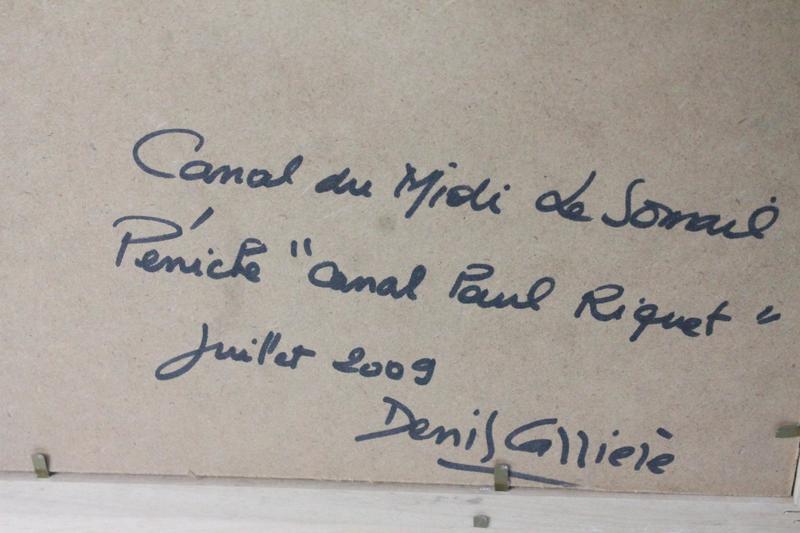 Canal du Midi Le Somail
Péniche "Canal Paul Riquet"
Juillet 2009
Denis Carrière